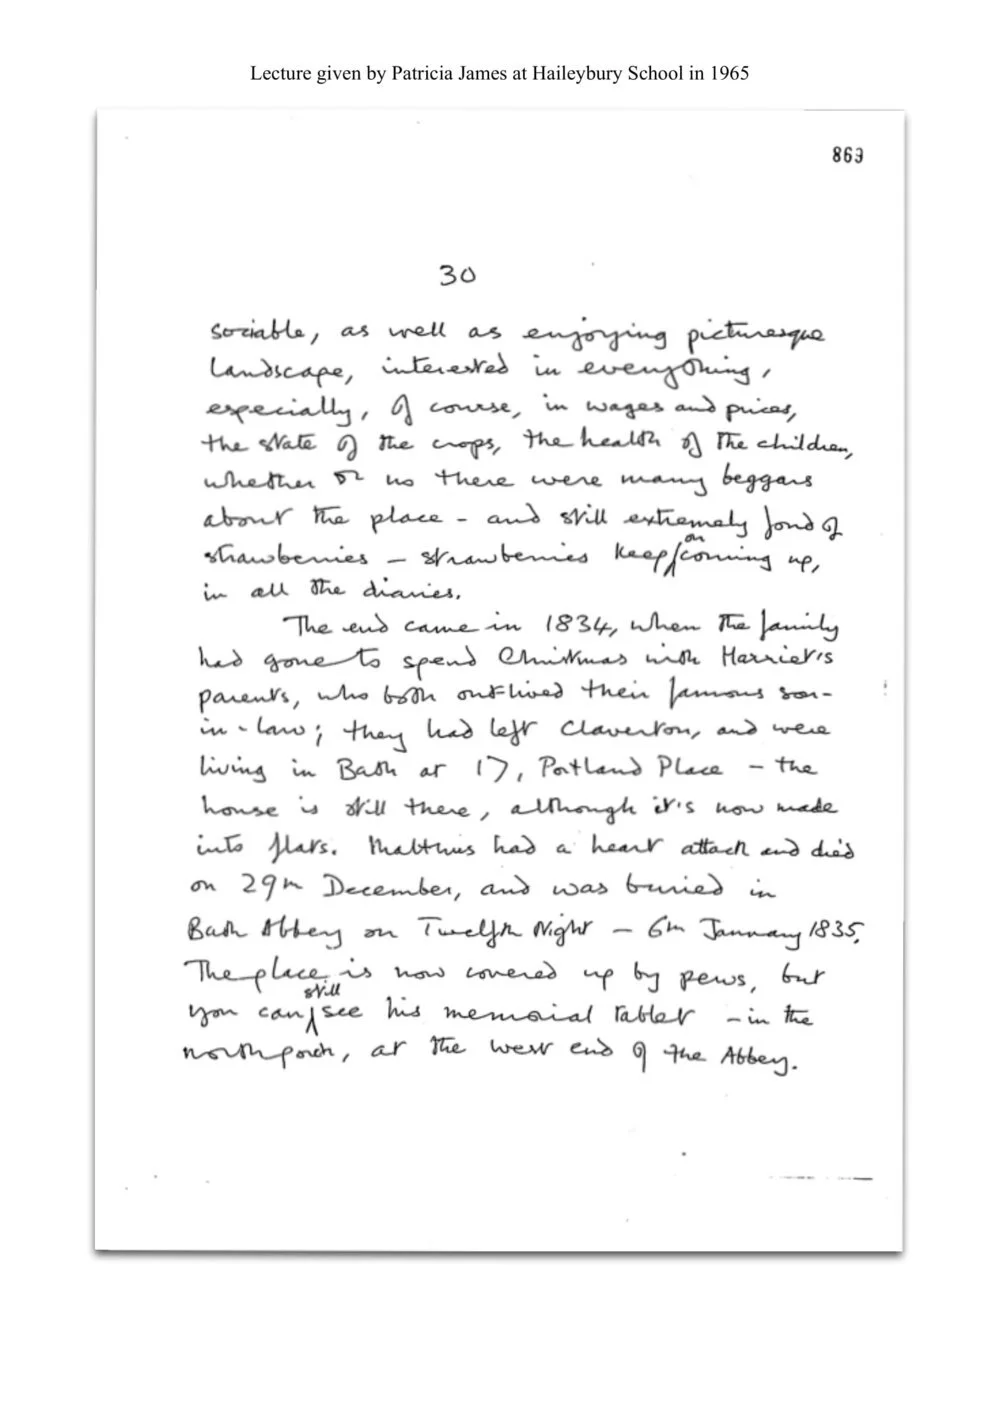 Lecture given by Patricia James at Haileybury School in 1965
869
30
sociable, as well as enjoying picturesque
landscape, interested in everything,
especially, of course, in wages and prices,
the state of the crops, the health of the children,
whether or no there were many beggars
about the place - and still extremely fond of
strawberries – strawberries keep on coming up,
in all the diaries.
The end came in 1834, when the family
had gone to spend Christmas with Harriet's
parents, who both outlived their famous son-
in-law; they had left Claverton, and were
living in Bath at 17, Portland Place – the
house is still there, although it's now made
into flats. Malthus had a heart attack and died
on 29th December, and was buried in
Bath Abbey on Twelfth Night – 6th January 1835.
The place is now covered up by pews, but
you can still see his memorial tablet – in the
north porch, at the west end of the Abbey.